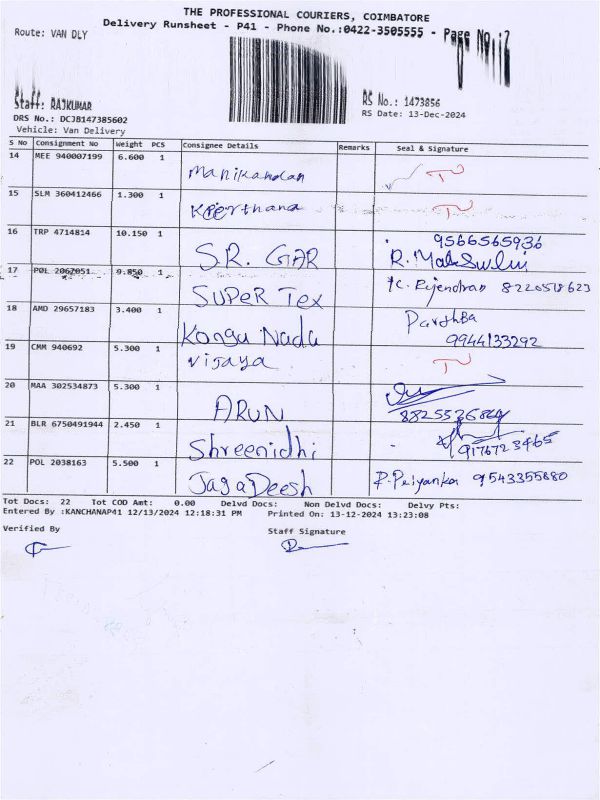 THE PROFESSIONAL COURIERS, COIMBATORE
Delivery Runsheet - P41 - Phone No.:0422-3505555 - Page No.:2
Route: VAN DLY
Staff: RAJKUMAR
RS No.: 1473856
DRS No.: DCJB147385602
RS Date: 13-Dec-2024
Vehicle: Van Delivery
S No Consignment No Weight PCS Consignee Details Remarks Seal & Signature
14 MEE 940007199 6.600 1 Manikandan
15 SLM 360412466 1.300 1 Keerthana
16 TRP 4714814 10.150 1 S.R. GAR 9566565936
17 POL 2062051 9.850 1 SUPER TEX K. Rijendran 8220518623
18 AMD 29657183 3.400 1 Kongu Nadu Parthba 9944133292
19 CMM 940692 5.300 1 Vijaya
20 MAA 302534873 5.300 1 ARUN
21 BLR 6750491944 2.450 1 Shreenidhi 9176723465
22 POL 2038163 5.500 1 JagaDeesh P. Priyanka 9543355880
Tot Docs: 22 Tot COD Amt: 0.00 Delvd Docs: Non Delvd Docs: Delvy Pts:
Entered By :KANCHANAP41 12/13/2024 12:18:31 PM Printed On: 13-12-2024 13:23:08
Verified By Staff Signature